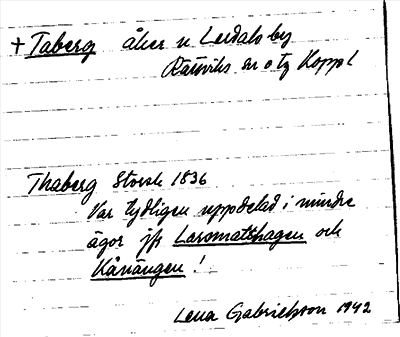 + Taberg åker u Lerdals by
Rättviks sn o tg Koppl
Thaberg Storsk 1836
Var tydligen uppdelad i mindre
ägor jfr Larsmatshagen och
Kårängen!
Lena Gabrielsson 1942